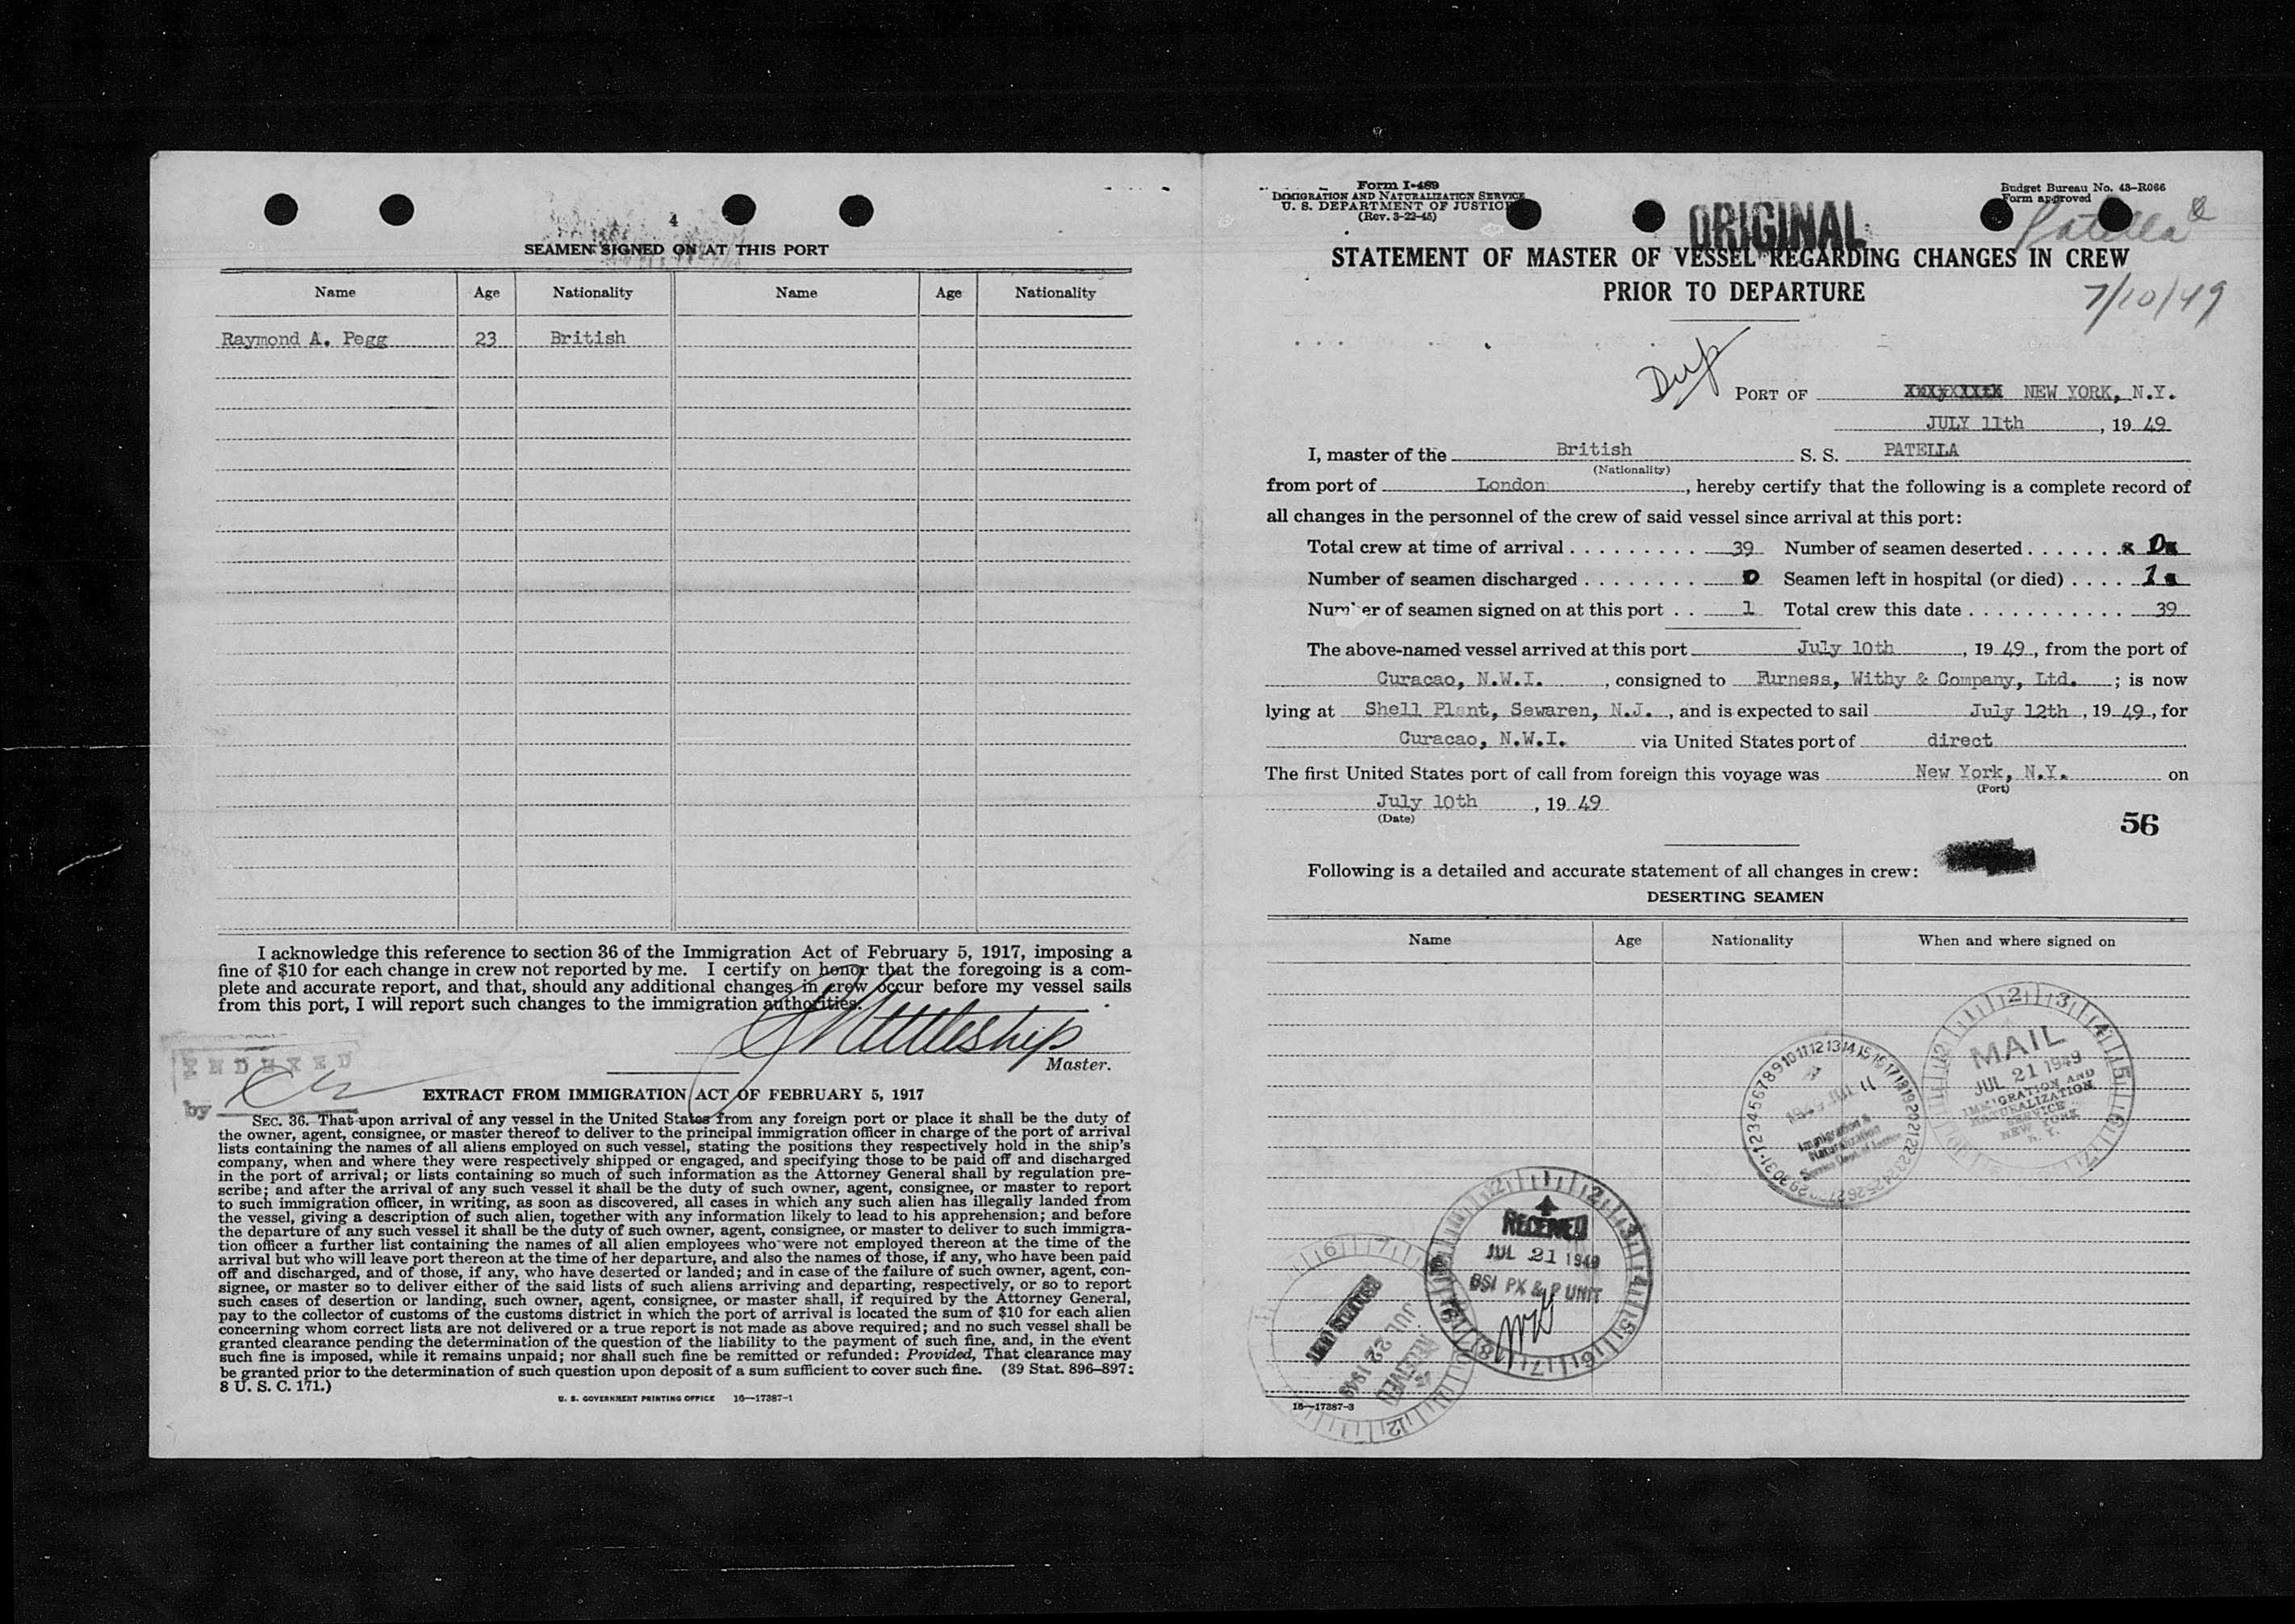 4
SEAMEN SIGNED ON AT THIS PORT
Name Age Nationality Name Age Nationality
Raymond A. Pegg 23 British
I acknowledge this reference to section 36 of the Immigration Act of February 5, 1917, imposing a
fine of $10 for each change in crew not reported by me. I certify on honor that the foregoing is a com-
plete and accurate report, and that, should any additional changes in crew occur before my vessel sails
from this port, I will report such changes to the immigration authorities.
Nettleship
Master.
INDEXED
by
EXTRACT FROM IMMIGRATION ACT OF FEBRUARY 5, 1917
SEC. 36. That upon arrival of any vessel in the United States from any foreign port or place it shall be the duty of
the owner, agent, consignee, or master thereof to deliver to the principal immigration officer in charge of the port of arrival
lists containing the names of all aliens employed on such vessel, stating the positions they respectively hold in the ship's
company, when and where they were respectively shipped or engaged, and specifying those to be paid off and discharged
in the port of arrival; or lists containing so much of such information as the Attorney General shall by regulation pre-
scribe; and after the arrival of any such vessel it shall be the duty of such owner, agent, consignee, or master to report
to such immigration officer, in writing, as soon as discovered, all cases in which any such alien has illegally landed from
the vessel, giving a description of such alien, together with any information likely to lead to his apprehension; and before
the departure of any such vessel it shall be the duty of such owner, agent, consignee, or master to deliver to such immigra-
tion officer a further list containing the names of all alien employees who were not employed thereon at the time of the
arrival but who will leave port thereon at the time of her departure, and also the names of those, if any, who have been paid
off and discharged, and of those, if any, who have deserted or landed; and in case of the failure of such owner, agent, con-
signee, or master so to deliver either of the said lists of such aliens arriving and departing, respectively, or so to report
such cases of desertion or landing, such owner, agent, consignee, or master shall, if required by the Attorney General,
pay to the collector of customs of the customs district in which the port of arrival is located the sum of $10 for each alien
concerning whom correct lists are not delivered or a true report is not made as above required; and no such vessel shall be
granted clearance pending the determination of the question of the liability to the payment of such fine, and, in the event
such fine is imposed, while it remains unpaid; nor shall such fine be remitted or refunded: Provided, That clearance may
be granted prior to the determination of such question upon deposit of a sum sufficient to cover such fine. (39 Stat. 896–897;
8 U. S. C. 171.)
U. S. GOVERNMENT PRINTING OFFICE 16—17387-1
Form I-489
IMMIGRATION AND NATURALIZATION SERVICE
U. S. DEPARTMENT OF JUSTICE
(Rev. 3-22-45)
Budget Bureau No. 43-R066
Form approved
ORIGINAL
Patella
STATEMENT OF MASTER OF VESSEL REGARDING CHANGES IN CREW
PRIOR TO DEPARTURE
7/10/49
Dup
PORT OF NEW YORK, N.Y.
JULY 11th, 19 49
I, master of the British S. S. PATELLA
(Nationality)
from port of London, hereby certify that the following is a complete record of
all changes in the personnel of the crew of said vessel since arrival at this port:
Total crew at time of arrival . . . . . . . . . 39 Number of seamen deserted . . . . . . . 0
Number of seamen discharged . . . . . . . . 0 Seamen left in hospital (or died) . . . . 1
Number of seamen signed on at this port . . 1 Total crew this date . . . . . . . . . . . . 39
The above-named vessel arrived at this port July 10th, 19 49, from the port of
Curacao, N.W.I., consigned to Furness, Withy & Company, Ltd. ; is now
lying at Shell Plant, Sewaren, N.J., and is expected to sail July 12th, 19 49, for
Curacao, N.W.I. via United States port of direct
The first United States port of call from foreign this voyage was New York, N.Y. on
(Port)
July 10th, 19 49
(Date)
56
Following is a detailed and accurate statement of all changes in crew:
DESERTING SEAMEN
Name Age Nationality When and where signed on
MAIL
JUL 21 1949
IMMIGRATION AND
NATURALIZATION
SERVICE
NEW YORK
N. Y.
1949 JUL 11
Immigration &
Naturalization
Service Dept. of Justice
RECEIVED
JUL 21 1949
BSI PX & P UNIT
JUL 22 1949
RECEIVED
16—17387-3